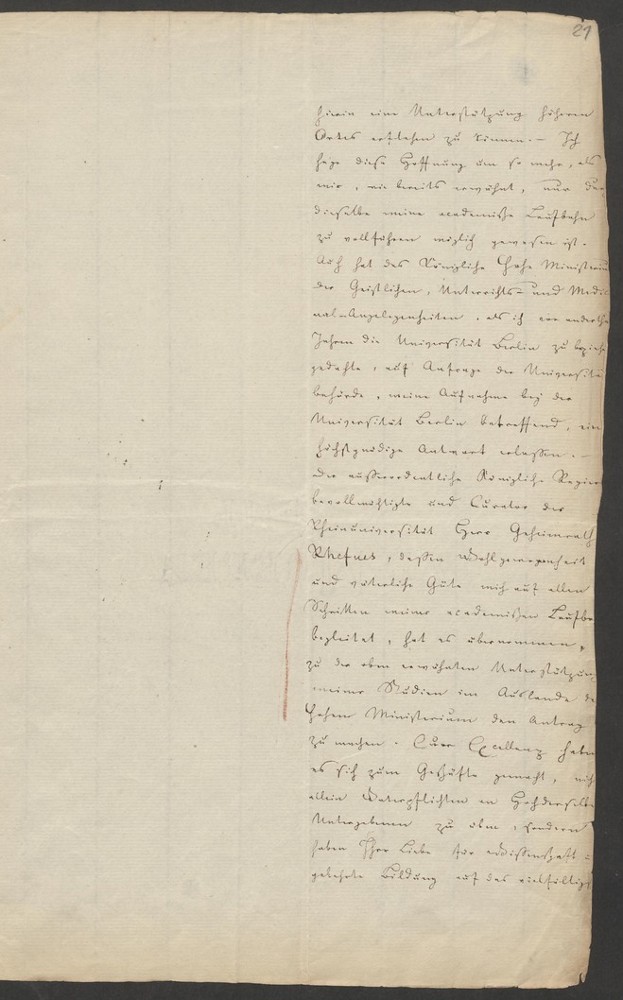 21
hierin eine Unterstützung höheren
Ortes erflehen zu können. – Ich
hege diese Hoffnung um so mehr, als
mir, wie bereits erwähnt, nur durch
dieselbe meine academische Laufbahn
zu vollführen möglich gewesen ist.
Auch hat das Königliche Hohe Ministerium
der Geistlichen, Unterrichts- und Medici-
nal-Angelegenheiten, als ich vor anderthalb
Jahren die Universität Berlin zu beziehen
gedachte, auf Anfrage der Universitäts
behörde, meine Aufnahme bei der
Universität Berlin betreffend, eine
höchstgnädige Antwort erlassen. –
Der außerordentliche Königliche Regier
bevollmächtigte und Curator der
Rheinuniversität Herr Geheimrath
Rhefues, dessen Wohlgewogenheit
und väterliche Güte mich auf allen
Schritten meiner academischen Laufba
begleitet, hat es übernommen,
zu der oben erwähnten Unterstützung
meiner Studien im Auslande de
Hohen Ministerium den Antrag
zu machen. Euer Excellenz haben
es sich zum Geschäfte gemacht, nicht
allein Vaterpflichten an Hochderselben
Untergebenen zu üben, sondern
haben Ihre Liebe für Wissenschaft u
gelehrte Bildung auf das vielfältigs